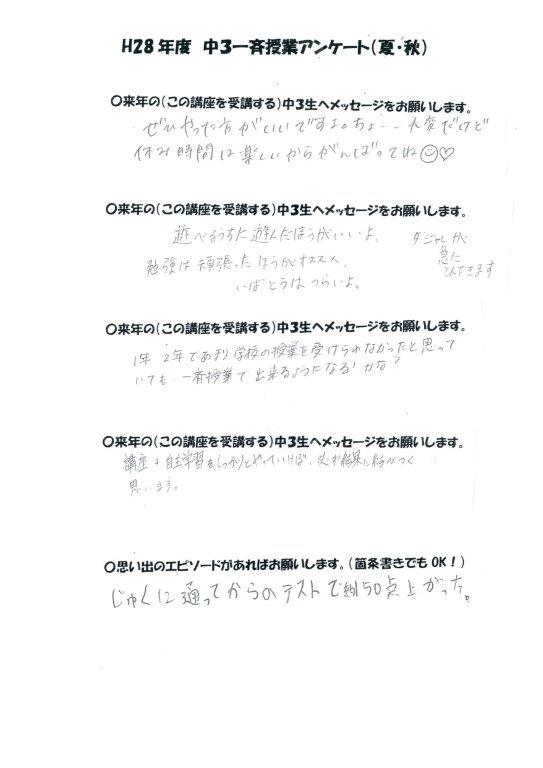 H28年度 中3一斉授業アンケート(夏・秋)
○来年の(この講座を受講する)中3生へメッセージをお願いします。
ぜひやった方がいいですよ。ちょー大変だけど
休み時間は楽しいからがんばってね☺♡
○来年の(この講座を受講する)中3生へメッセージをお願いします。
遊べるうちに遊んだほうがいいよ。
勉強は頑張ったほうがオススメ、
いばとうはつらいよ。
ダジャレが
急に
とんできます
○来年の(この講座を受講する)中3生へメッセージをお願いします。
1年 2年であまり学校の授業を受けられなかったと思って
いても、一斉授業で出来るようになる!かな?
○来年の(この講座を受講する)中3生へメッセージをお願いします。
講座+自主学習をしっかりとやっていけば、必ず結果に結びつく
思います。
○思い出のエピソードがあればお願いします。(箇条書きでもOK!)
じゅくに通ってからのテストで約50点上がった。